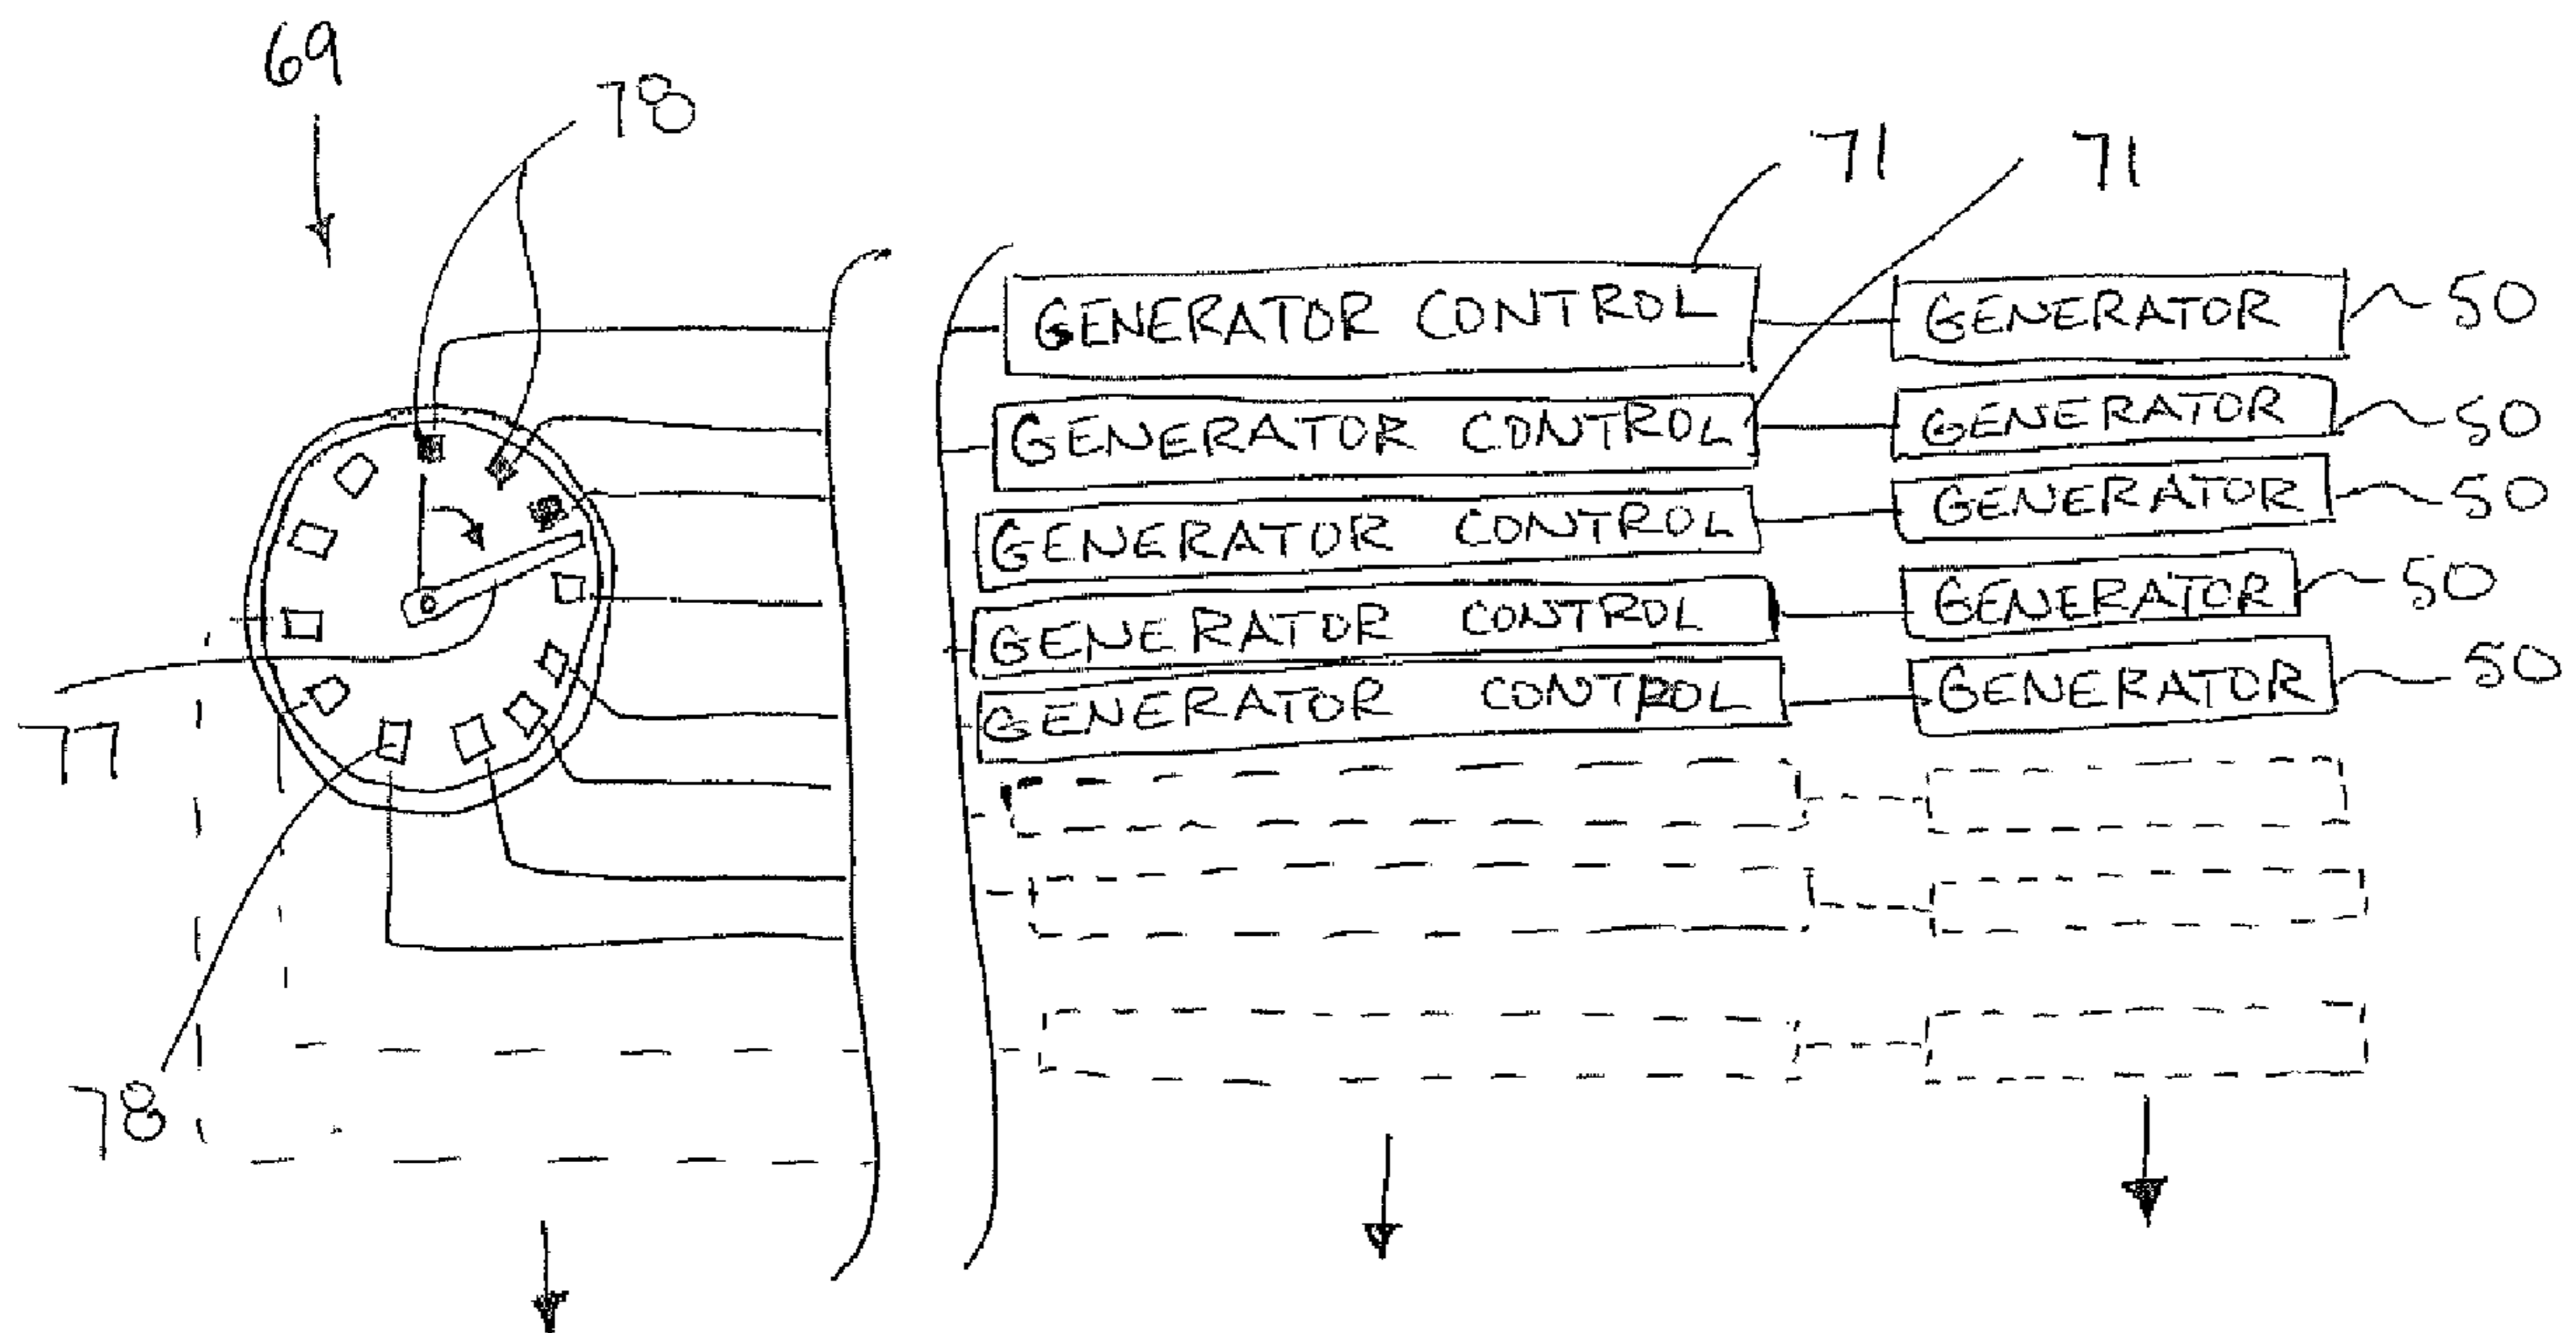 69
78
71
71
GENERATOR CONTROL
GENERATOR
50
GENERATOR CONTROL
GENERATOR
50
GENERATOR CONTROL
GENERATOR
50
GENERATOR CONTROL
GENERATOR
50
GENERATOR CONTROL
GENERATOR
50
77
78